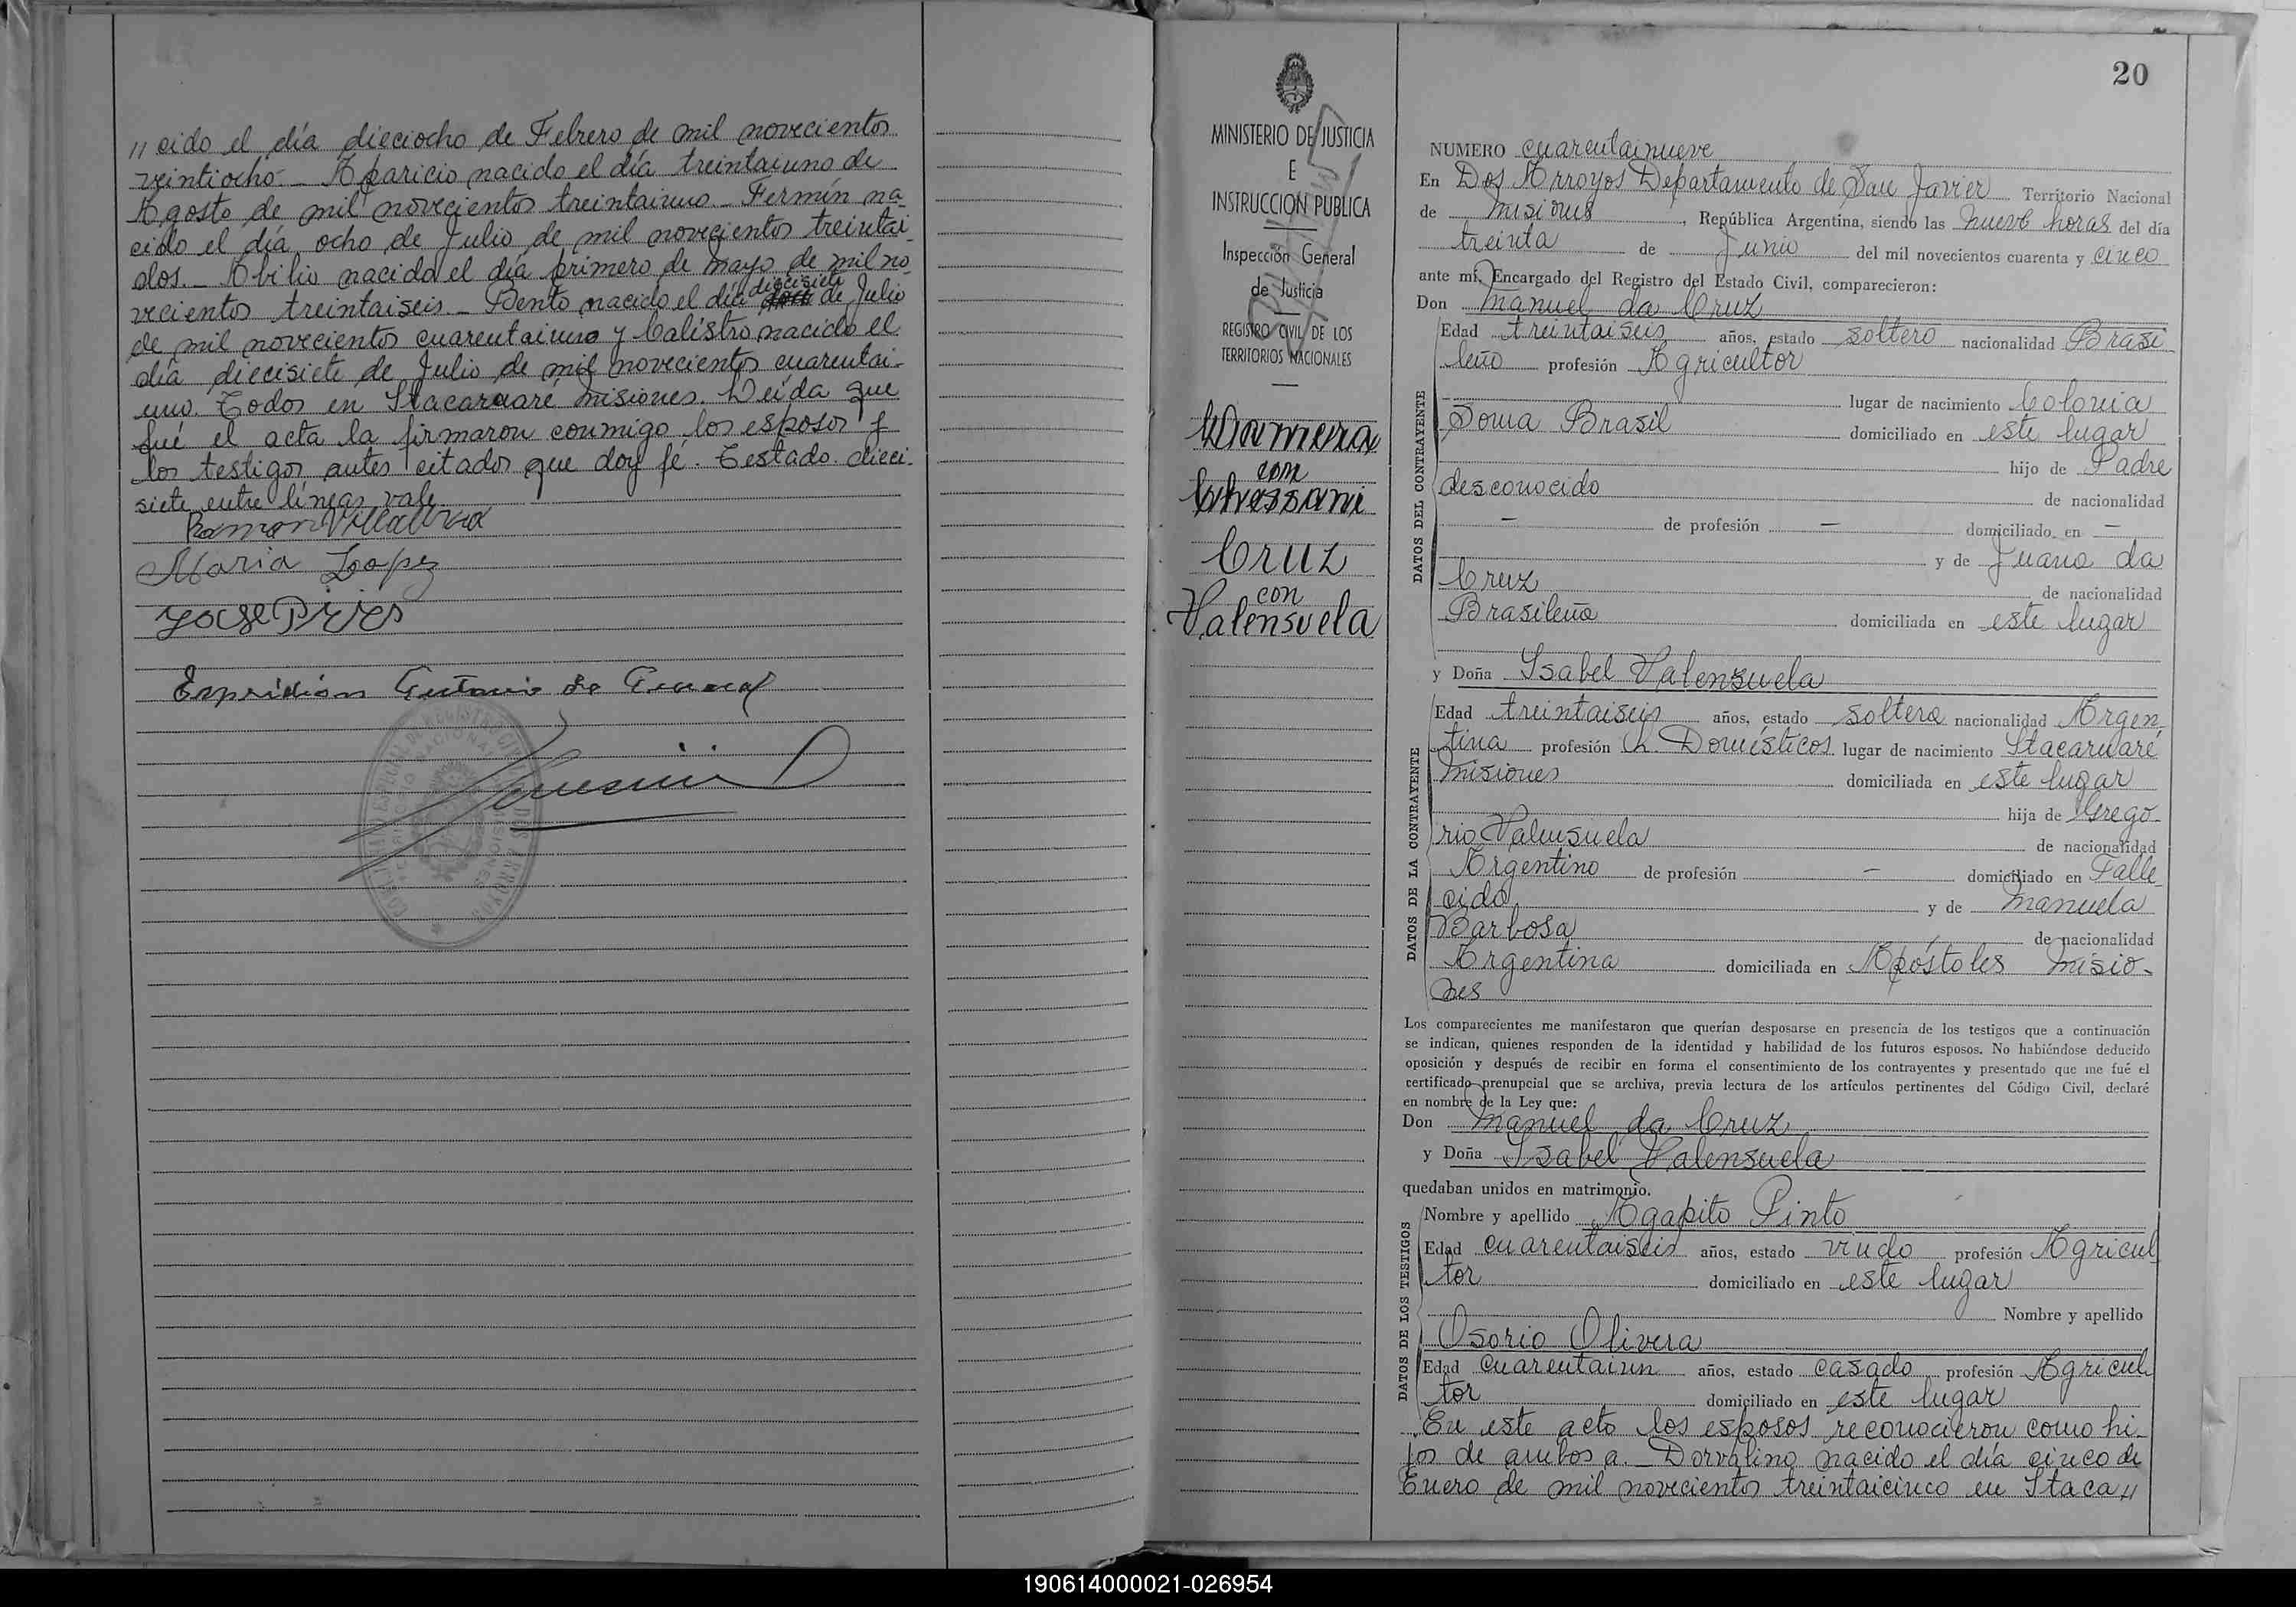 // cido el día dieciocho de Febrero de mil novecientos
veintiocho. _ Aparicio nacido el día treintaiuno de
Agosto de mil novecientos treintaiuno _ Fermín na_
cido el día ocho de Julio de mil novecientos treintai_
dos. _ Abilio nacido el día primero de mayo de mil no_
vecientos treintaiseis _ Bento nacido el día diecisiete de Julio
de mil novecientos cuarentaiuno y Calistro nacido el
día diecisiete de Julio de mil novecientos cuarentai-
uno. Todos en Itacaruaré Misiones. Leída que
fué el acta la firmaron conmigo los esposos y
los testigos antes citados que doy fé. Testado. dieci-
siete entre líneas vale
Ramon Villalva
Maria Lopez
José Piris
20
MINISTERIO DE JUSTICIA
E
INSTRUCCION PUBLICA
Inspección General
de Justicia
REGISTRO CIVIL DE LOS
TERRITORIOS NACIONALES
con
Cruz
con
Valensuela
NUMERO cuarentainueve
En Dos Arroyos Departamento de San Javier Territorio Nacional
de Misiones, República Argentina, siendo las nueve horas del día
treinta de Junio del mil novecientos cuarenta y cinco
ante mí, Encargado del Registro del Estado Civil, comparecieron:
Don Manuel da Cruz
DATOS DEL CONTRAYENTE
Edad treintaiseis años, estado soltero nacionalidad Brasi
leño profesión Agricultor
lugar de nacimiento Colonia
Soma Brasil domiciliado en este lugar
hijo de Padre
desconocido de nacionalidad
— de profesión — domiciliado en —
y de Juana da
Cruz de nacionalidad
Brasileña domiciliada en este lugar
y Doña Isabel Valensuela
DATOS DE LA CONTRAYENTE
Edad treintaiseis años, estado soltera nacionalidad Argen_
tina profesión Q. Domésticos lugar de nacimiento Itacaruaré
Misiones domiciliada en este lugar
hija de Grego_
rio Valensuela de nacionalidad
Argentino de profesión — domiciliado en Falle_
cido y de Manuela
Barbosa de nacionalidad
Argentina domiciliada en Apóstoles Misio-
nes
Los comparecientes me manifestaron que querían desposarse en presencia de los testigos que a continuación
se indican, quienes responden de la identidad y habilidad de los futuros esposos. No habiéndose deducido
oposición y después de recibir en forma el consentimiento de los contrayentes y presentado que me fué el
certificado prenupcial que se archiva, previa lectura de los artículos pertinentes del Código Civil, declaré
en nombre de la Ley que:
Don Manuel da Cruz
y Doña Isabel Valensuela
quedaban unidos en matrimonio.
DATOS DE LOS TESTIGOS
Nombre y apellido Agapito Pinto
Edad cuarentaiseis años, estado viudo profesión Agricul_
tor domiciliado en este lugar
Nombre y apellido
Osorio Olivera
Edad cuarentaiun años, estado casado profesión Agricul
tor domiciliado en este lugar
En este acto los esposos reconocieron como hi_
jos de ambos a. _ Dorvalino nacido el día cinco de
Enero de mil novecientos treintaicinco en Itaca //
190614000021-026954